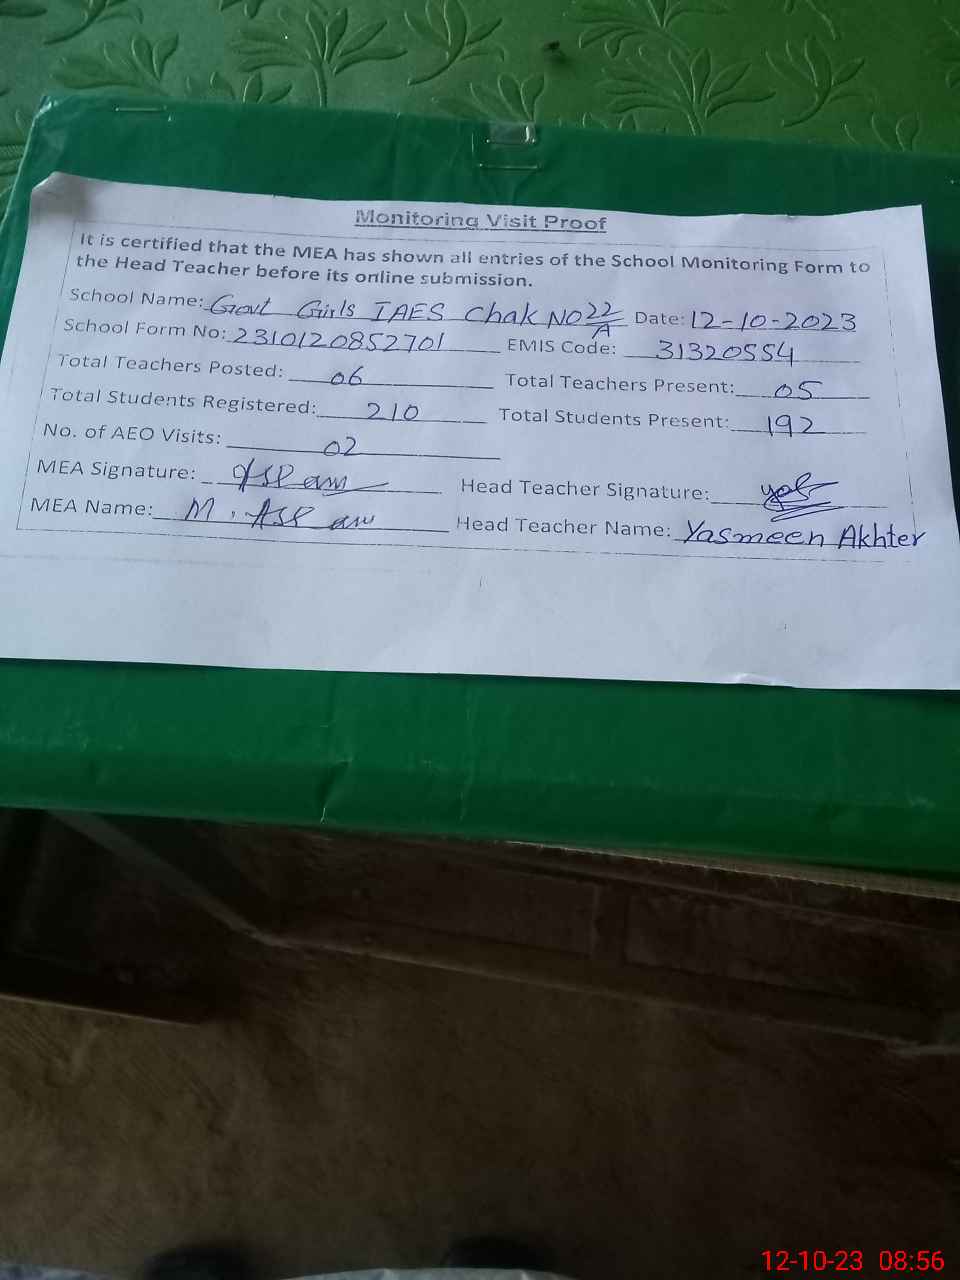 Monitoring Visit Proof
It is certified that the MEA has shown all entries of the School Monitoring Form to
the Head Teacher before its online submission.
School Name: Govt Girls IAES Chak NO 22/A Date: 12-10-2023
School Form No: 2310120852701 EMIS Code: 31320554
Total Teachers Posted: 06 Total Teachers Present: 05
Total Students Registered: 210 Total Students Present: 192
No. of AEO Visits: 02
MEA Signature: Head Teacher Signature:
MEA Name: M. Head Teacher Name: Yasmeen Akhter
12-10-23 08:56